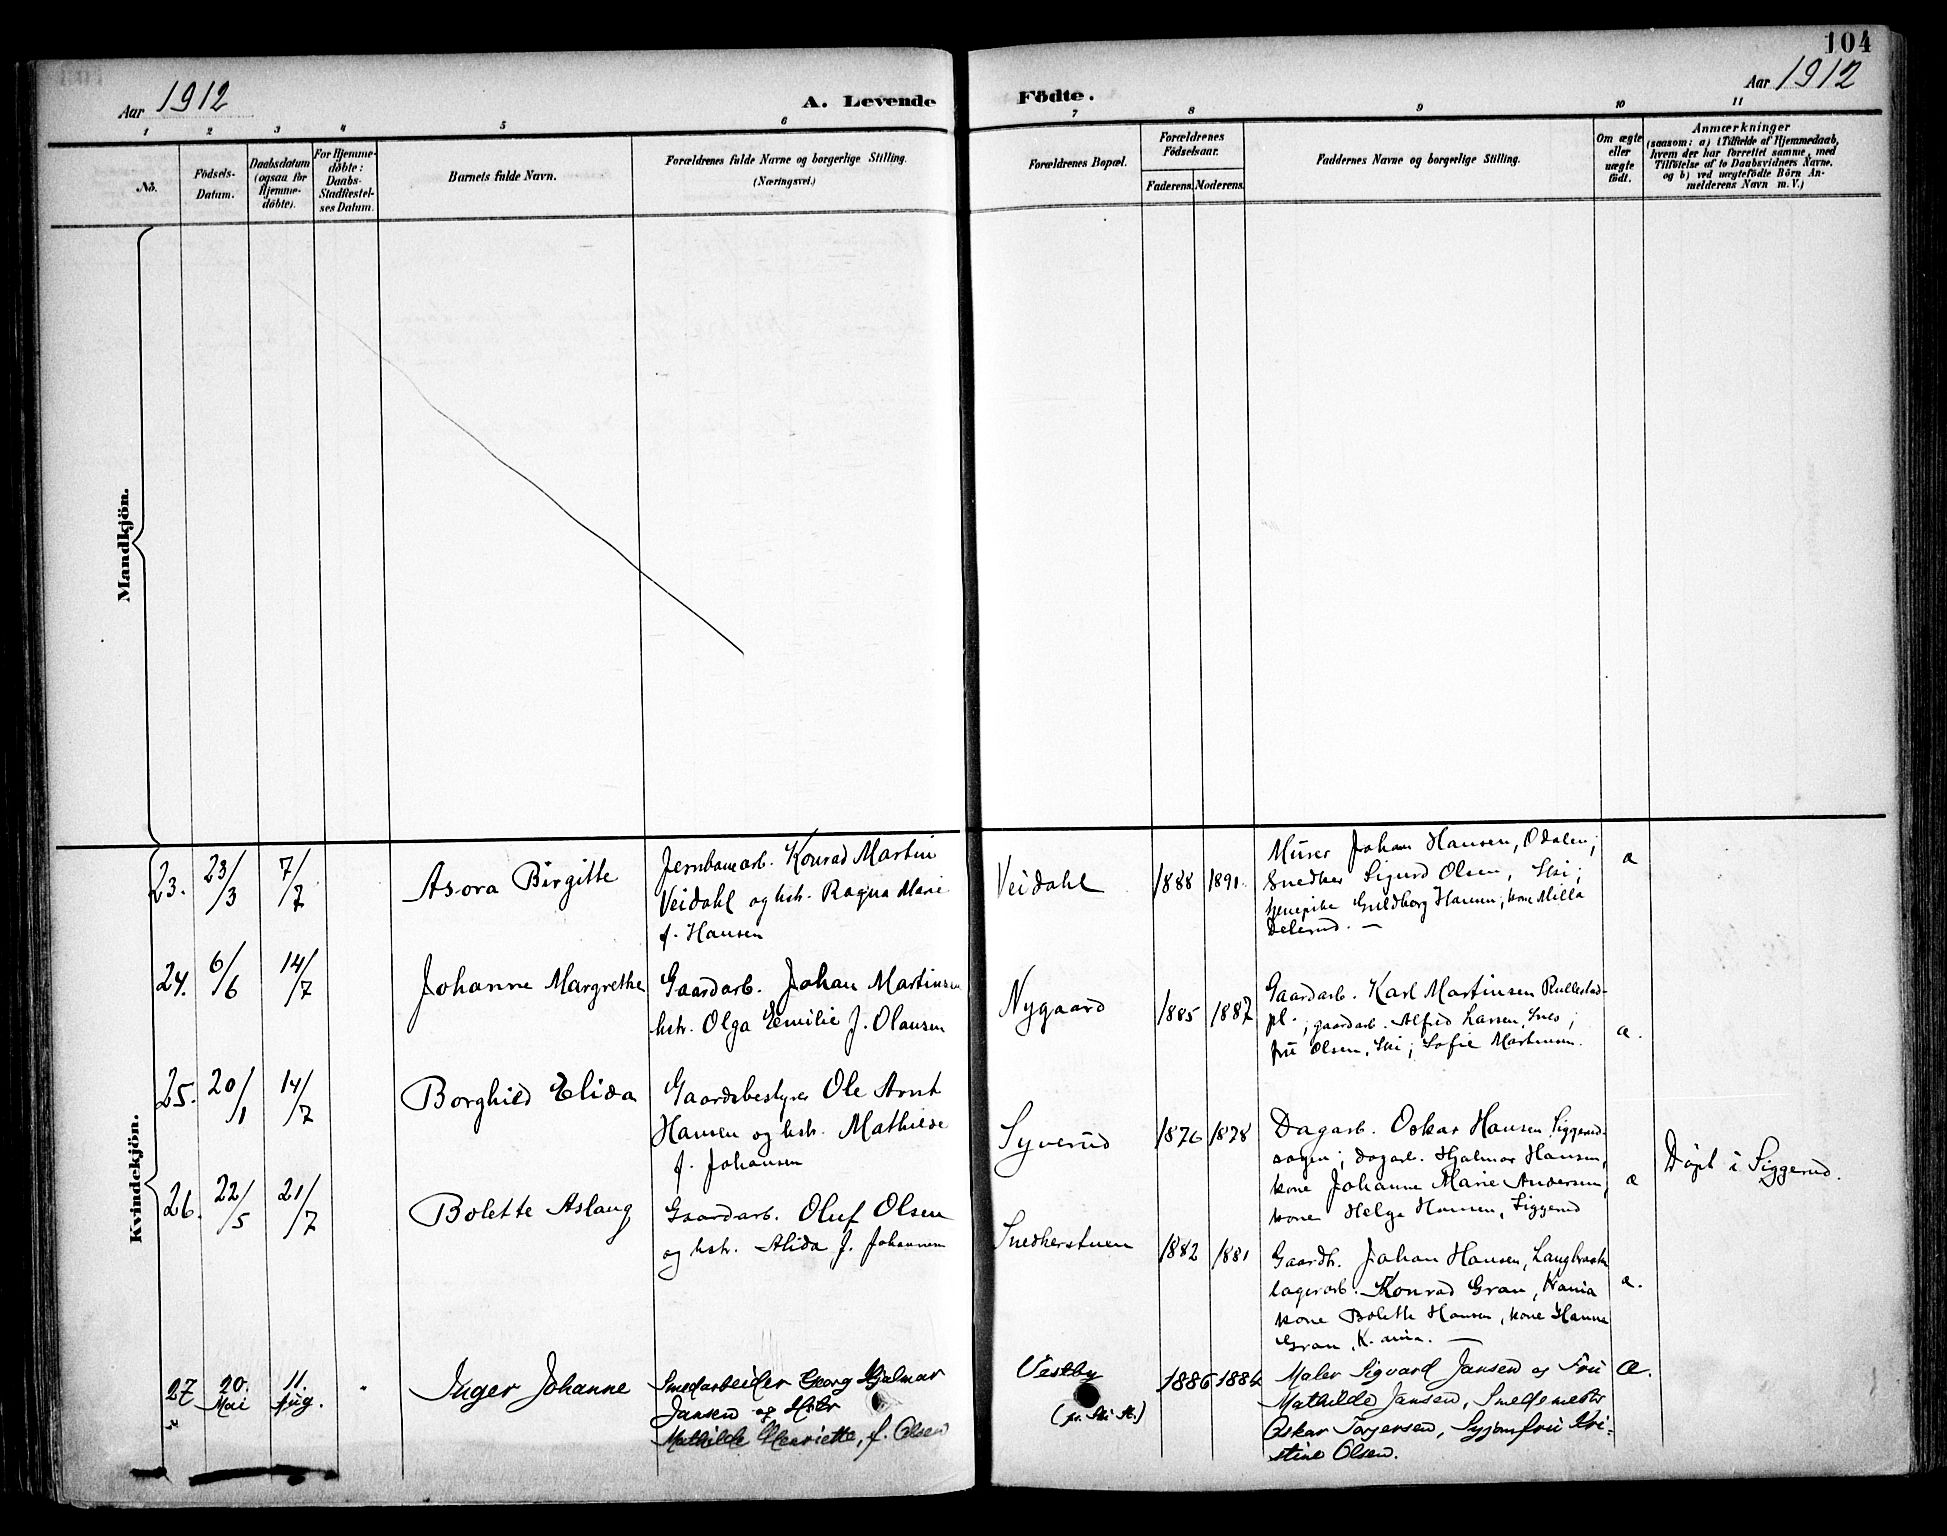 104
Aar 1912
A. Levende Födte.
Aar 1912
1 2 3 4 5 6 7 8 9 10 11
No.
Födsels-Datum.
Daabsdatum (ogsaa for Hjemme-döbte).
For Hjemme-döbte: Daabs-Stadfæstel-ses Datum.
Barnets fulde Navn.
Forældrenes fulde Navne og borgerlige Stilling.
(Næringsvei.)
Forældrenes Bopæl.
Forældrenes Födselsaar.
Faderens. Moderens.
Faddernes Navne og borgerlige Stilling.
Om ægte eller uægte födt.
Anmærkninger
(saasom: a) i Tilfælde af Hjemmedaab,
hvem der har forrettet samme, med
Tilföielse af to Daabsvidners Navne.
og b) ved uægtefödte Börn An-
melderens Navn m. V.)
Mandkjön.
Kvindekjön.
23. 23/3 7/7 Asora Birgitte
Jernbanearb. Konrad Martin
Veidahl og hstr. Ragna Marie
f. Hansen
Veidahl 1888 1891.
Murer Johan Hansen, Odalen;
Snedker Sigurd Olsen, Ski;
tjenepike Guldborg Hansen, kone Milla
Delerud. —
æ
24. 6/6 14/7 Johanne Margrethe
Gaardarb. Johan Martinsen
hstr. Olga Emilie f. Olausen
Nygaard 1885 1887
Gaardarb. Karl Martinsen Rullestad-
pl.; gaardarb. Alfred Larsen,
fru Olsen, Ski; Sofie Martinsen.
æ.
25. 20/1 14/7 Borghild Elida
Gaardsbestyrer Ole Arnt
Hansen og hstr. Mathilde
f. Johansen
Syverud 1876 1878
Dagarb. Oskar Hansen Siggerud-
sagen; dagarb. Hjalmar Hansen,
kone Johanne Marie Andersen,
kone Helga Hansen, Siggerud
æ
Døpt i Siggerud.
26. 22/5 21/7 Bolette Aslaug
Gaardarb. Oluf Olsen
og hstr. Alida f. Johansen
Snedkerstuen 1882 1881
Gaardbr. Johan Hansen,
lagerarb. Konrad Gran, Kania
kone Bolette Hansen, kone Hanna
Gran, K.ania. —
æ.
27 20. Mai 11. Aug. Inger Johanne
Smedarbeider Georg Hjalmar
Jansen og Hstr
Mathilde Henriette, f. Olsen
Vestby
(pr. Ski St.)
1886 1884
Maler Sigvard Jansen og Fru
Mathilde Jansen, Smedemester
Oskar Torgersen, Syjomfru Kri-
stine Olsen.
Æ.